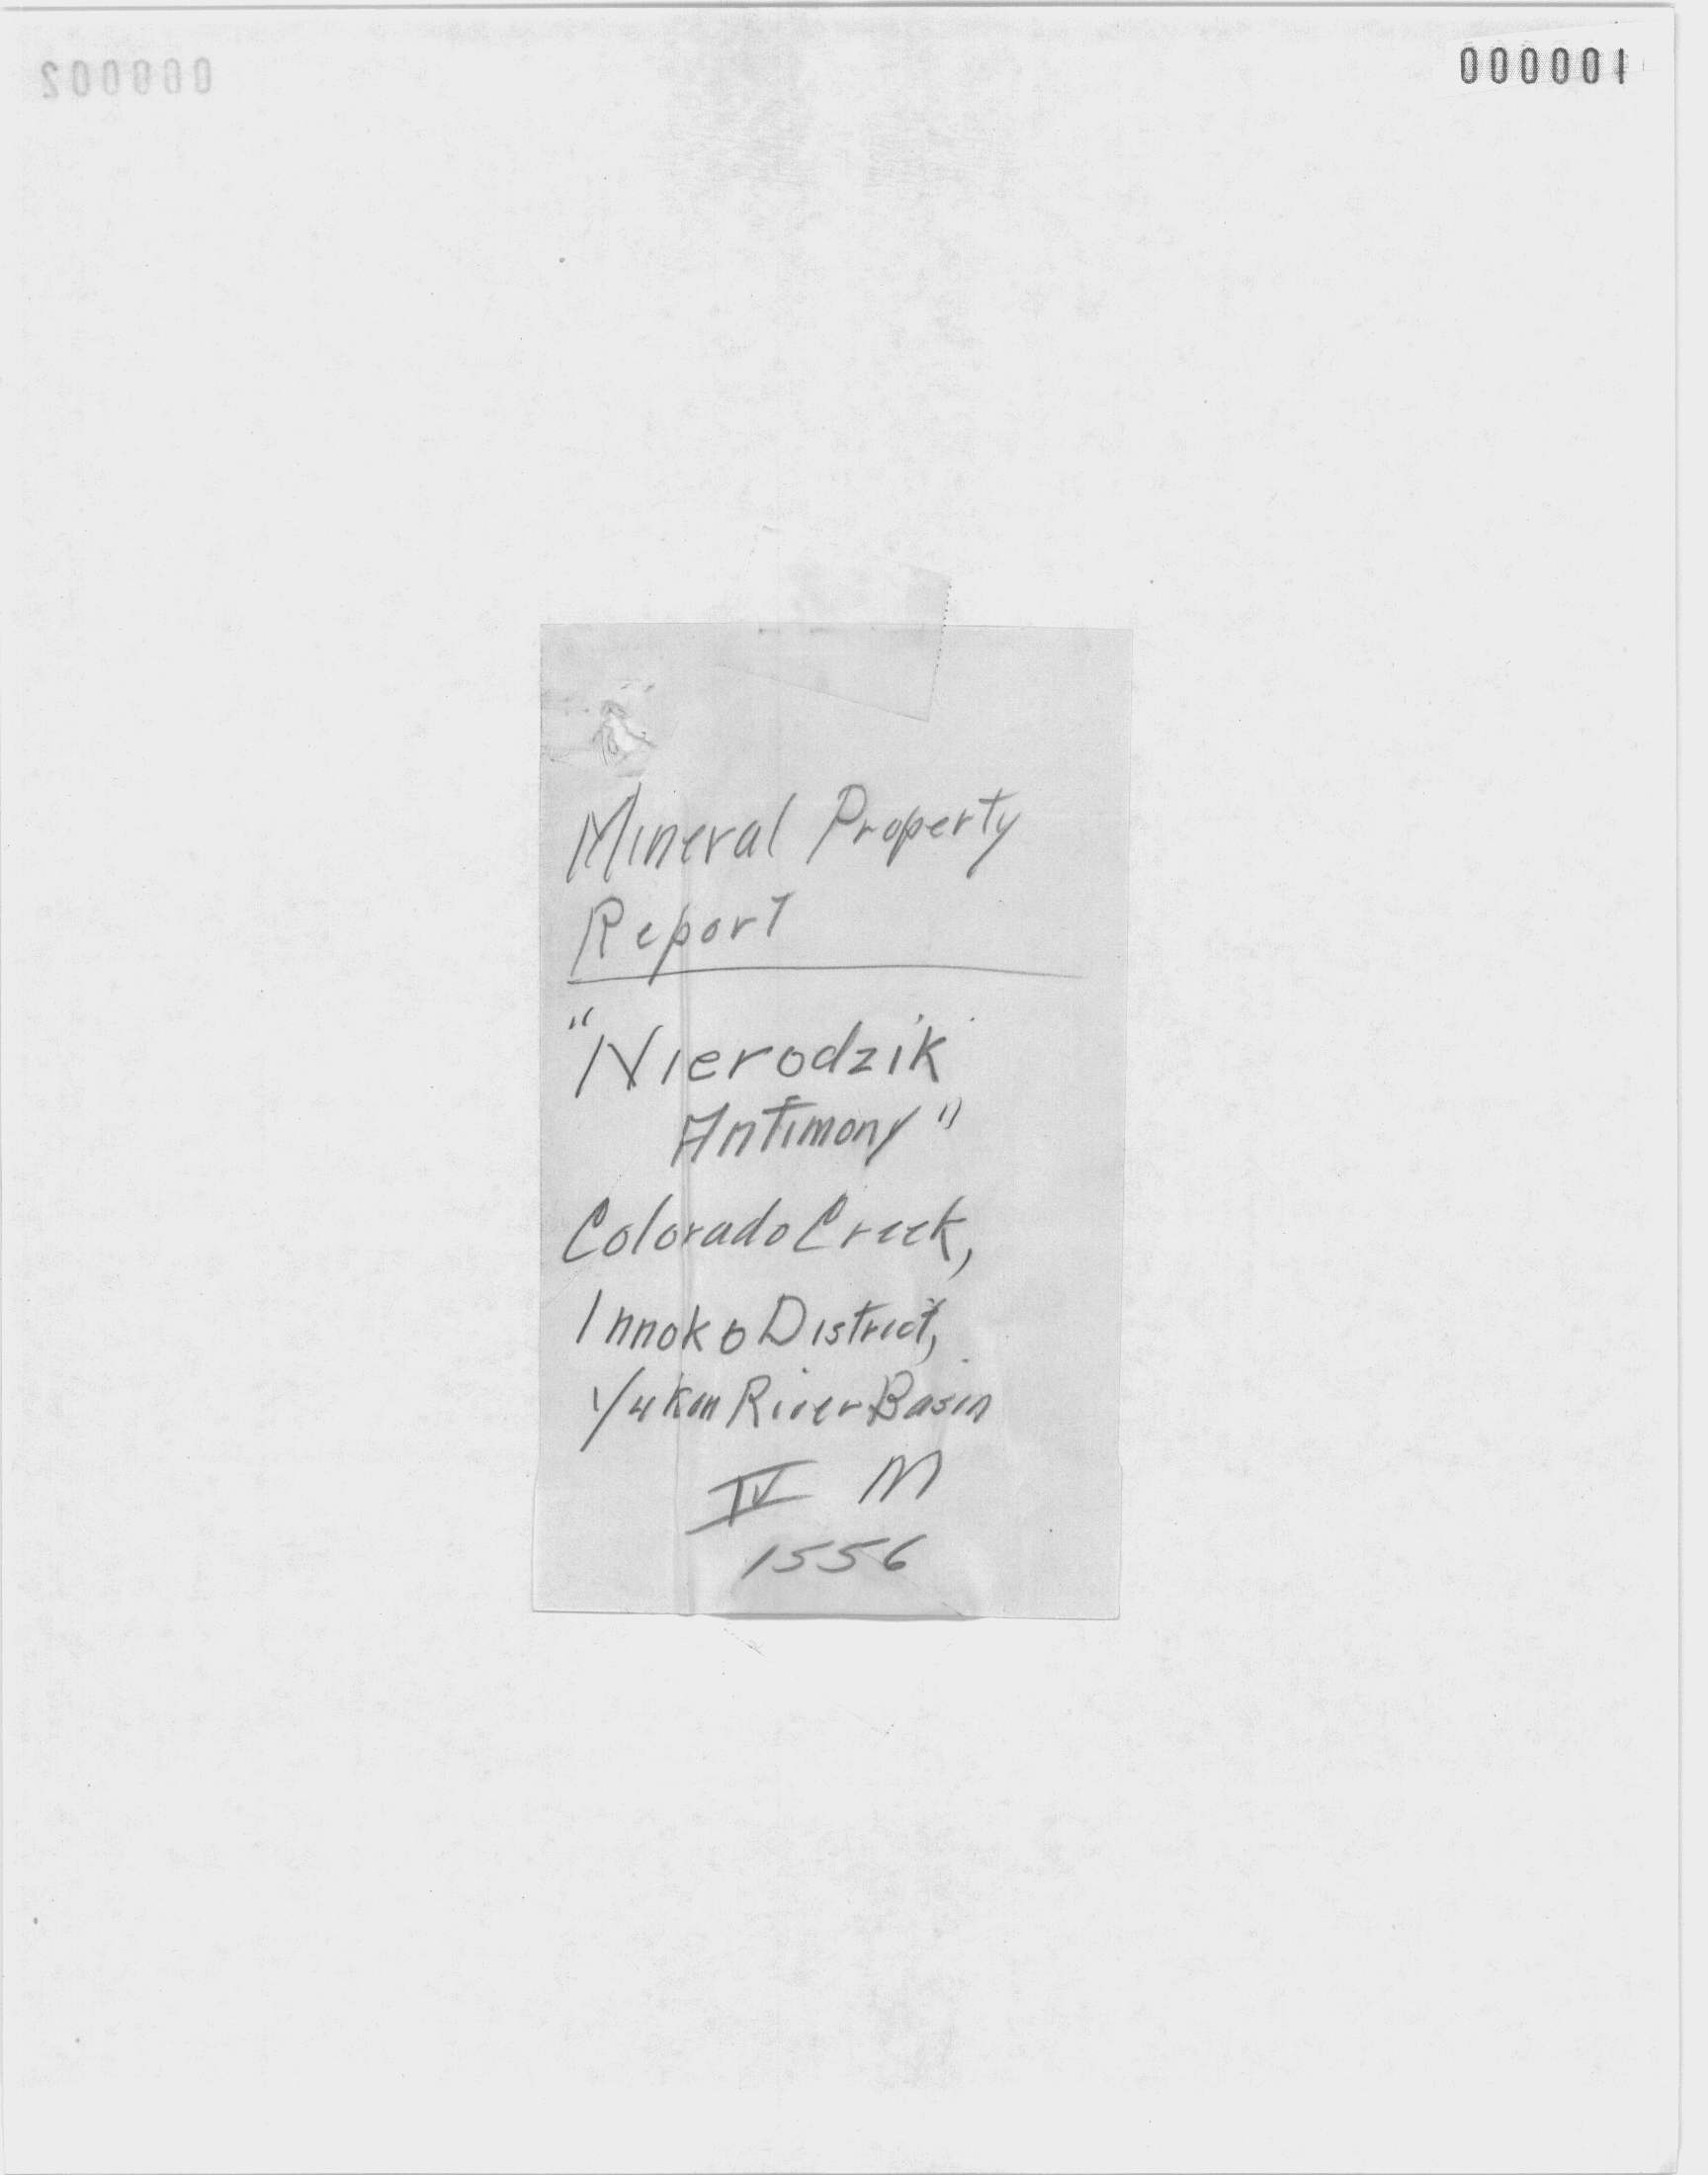 000001
000002
Mineral Property
Report
"Nierodzik
Antimony"
Colorado Creek,
Innoko District,
Yukon River Basin
IV M
1556